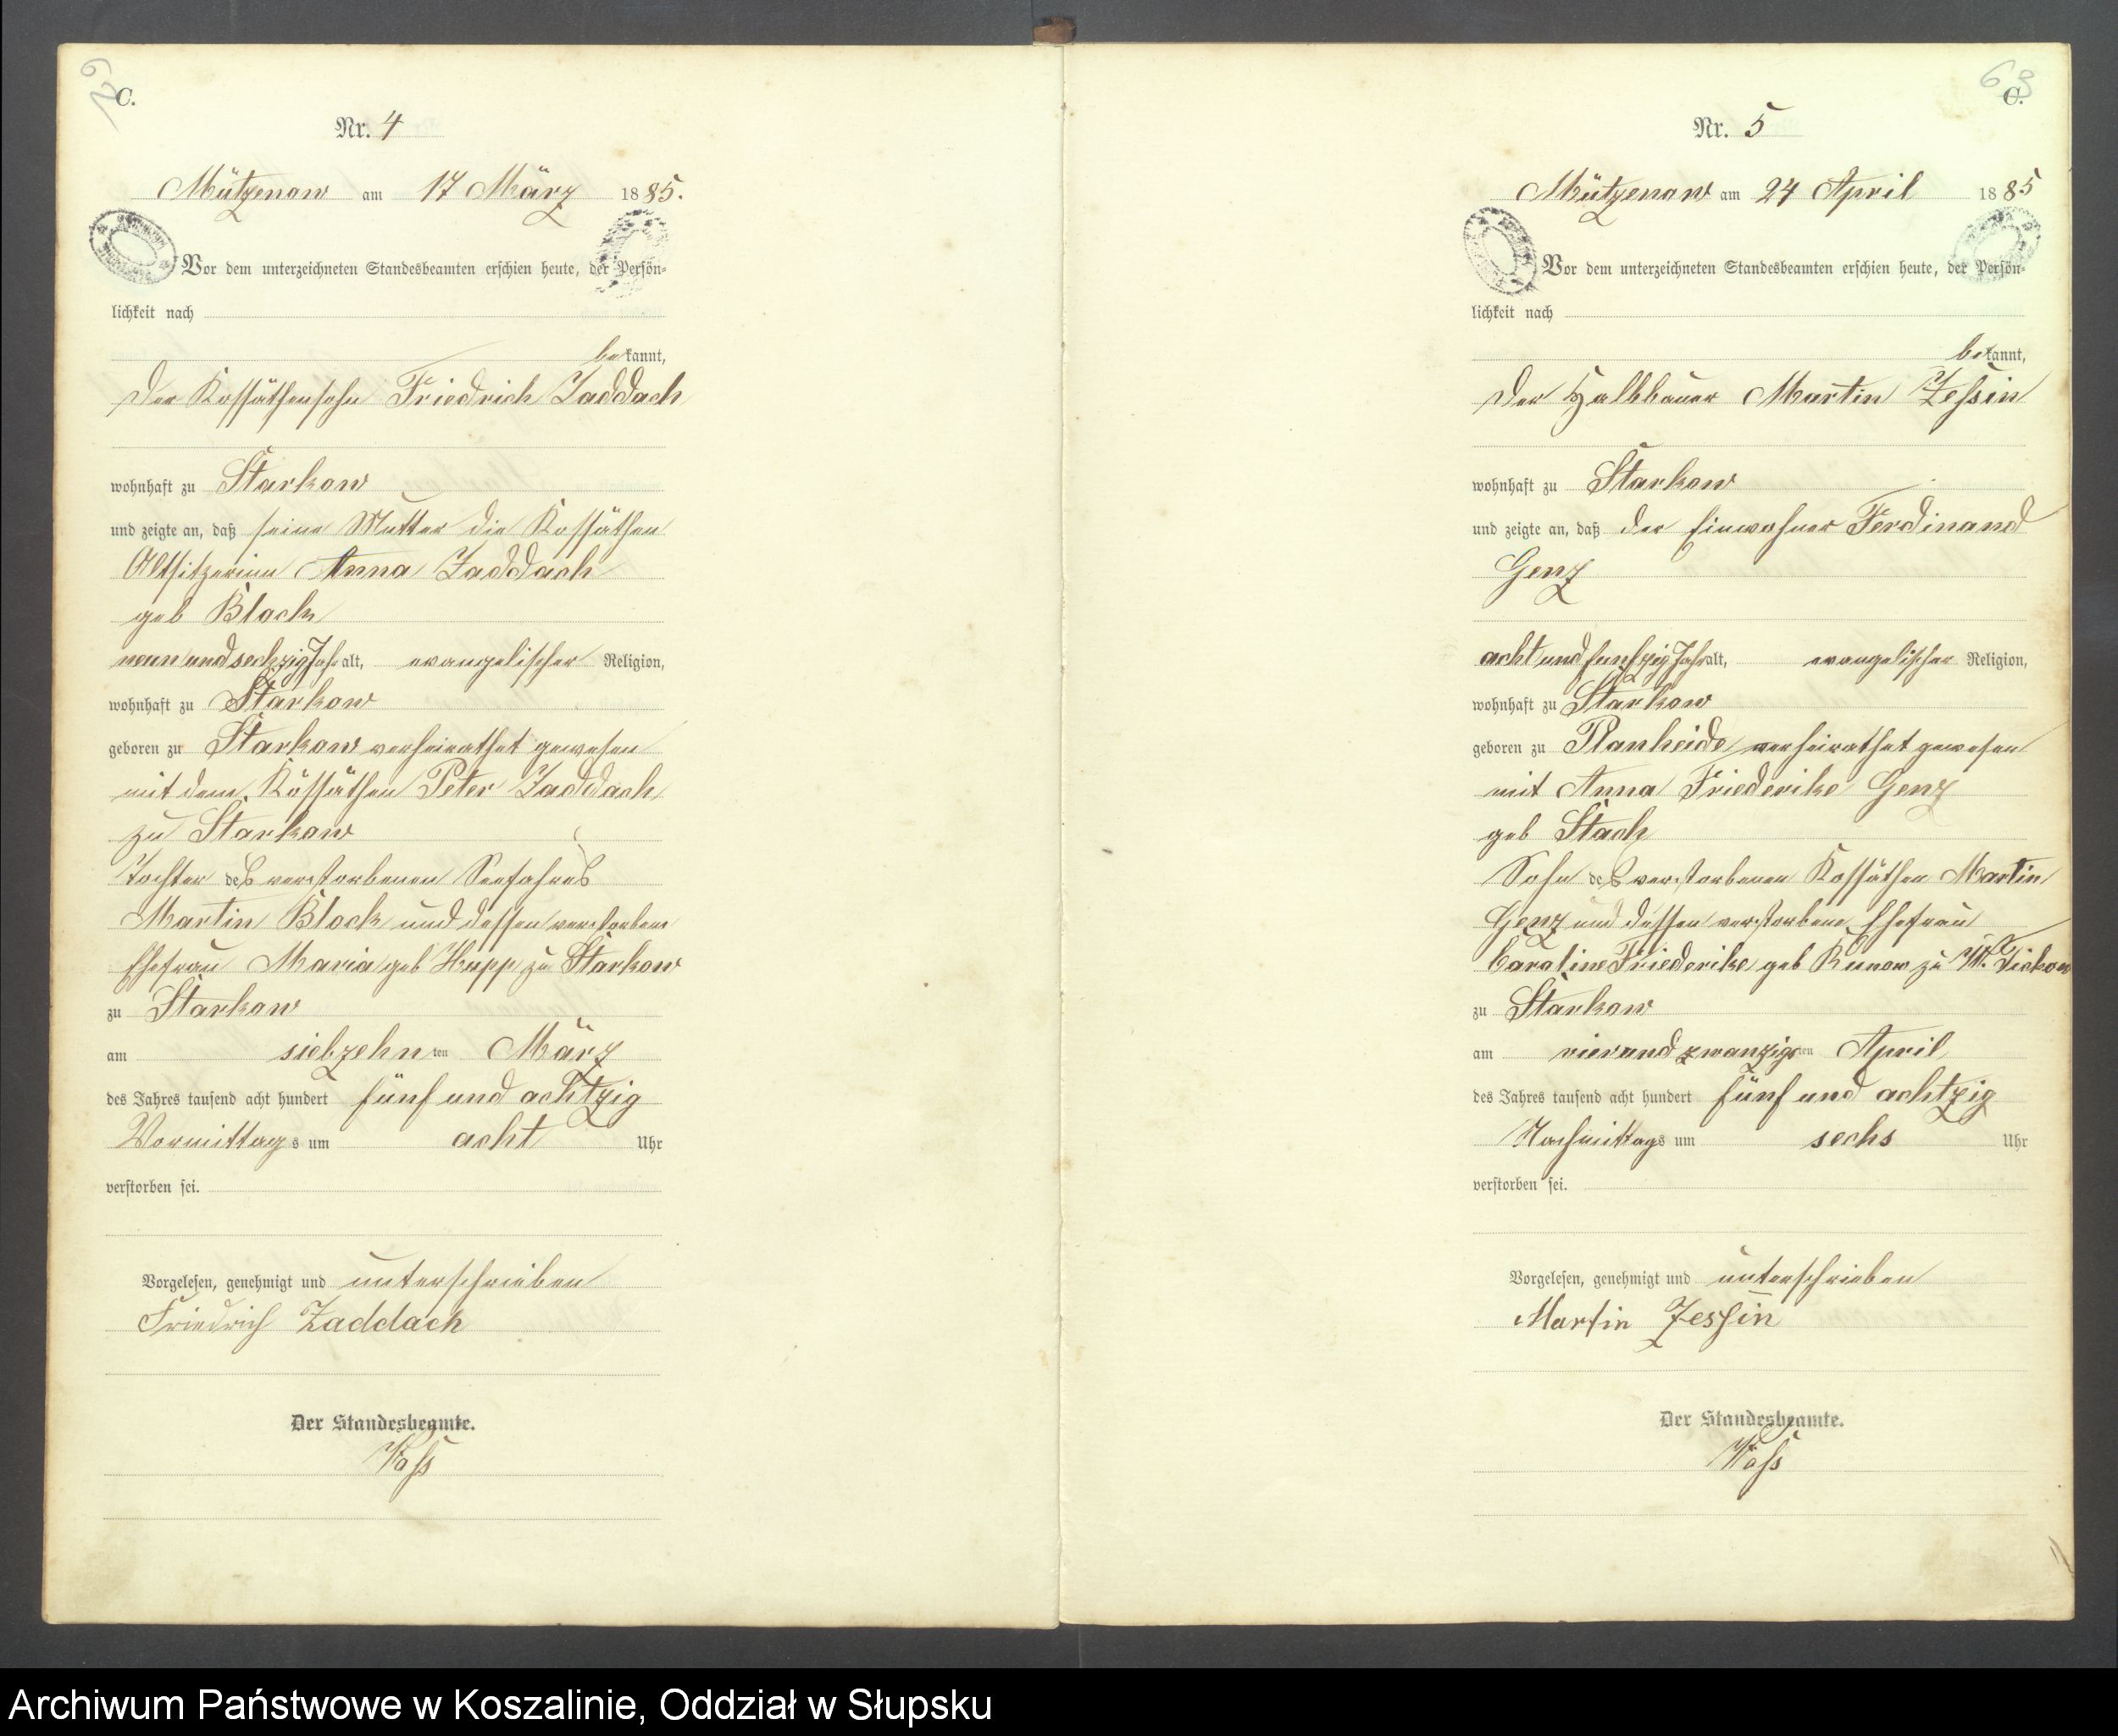 C.
Nr. 4
Mützenow am 17 März 1885.
Vor dem unterzeichneten Standesbeamten erschien heute, der Persön-
lichkeit nach
bekannt,
der Kossäthensohn Friedrich Zaddach
wohnhaft zu Starkow
und zeigte an, daß seine Mutter die Kossäthen
Altsitzerinn Anna Zaddach
geb Block
neun und sechzig Jahr alt, evangelischer Religion,
wohnhaft zu Starkow
geboren zu Starkow verheirathet gewesen
mit dem Kossäthen Peter Zaddach
zu Starkow
Tochter des verstorbenen Seefahrers
Martin Block und dessen verstorbene
Ehefrau Maria geb Hupp zu Starkow
zu Starkow
am siebzehnten März
des Jahres tausend acht hundert fünf und achtzig
Vormittags um acht Uhr
verstorben sei.
Vorgelesen, genehmigt und unterschrieben
Friedrich Zaddach
Der Standesbeamte.
Voß
63
C.
Nr. 5
Mützenow am 24 April 1885
Vor dem unterzeichneten Standesbeamten erschien heute, der Persön-
lichkeit nach
bekannt,
der Halbbauer Martin Zessin
wohnhaft zu Starkow
und zeigte an, daß der Einwohner Ferdinand
Genz
acht und funfzig Jahr alt, evangelischer Religion,
wohnhaft zu Starkow
geboren zu Planheide verheirathet gewesen
mit Anna Friederike Genz
geb Stach
Sohn des verstorbenen Kossäthen Martin
Genz und dessen verstorbene Ehefrau
Caroline Friederike geb Kunow zu W.
zu Starkow
am vierundzwanzigsten April
des Jahres tausend acht hundert fünf und achtzig
Nachmittags um sechs Uhr
verstorben sei.
Vorgelesen, genehmigt und unterschrieben
Martin Zessin
Der Standesbeamte.
Voß
Archiwum Państwowe w Koszalinie, Oddział w Słupsku